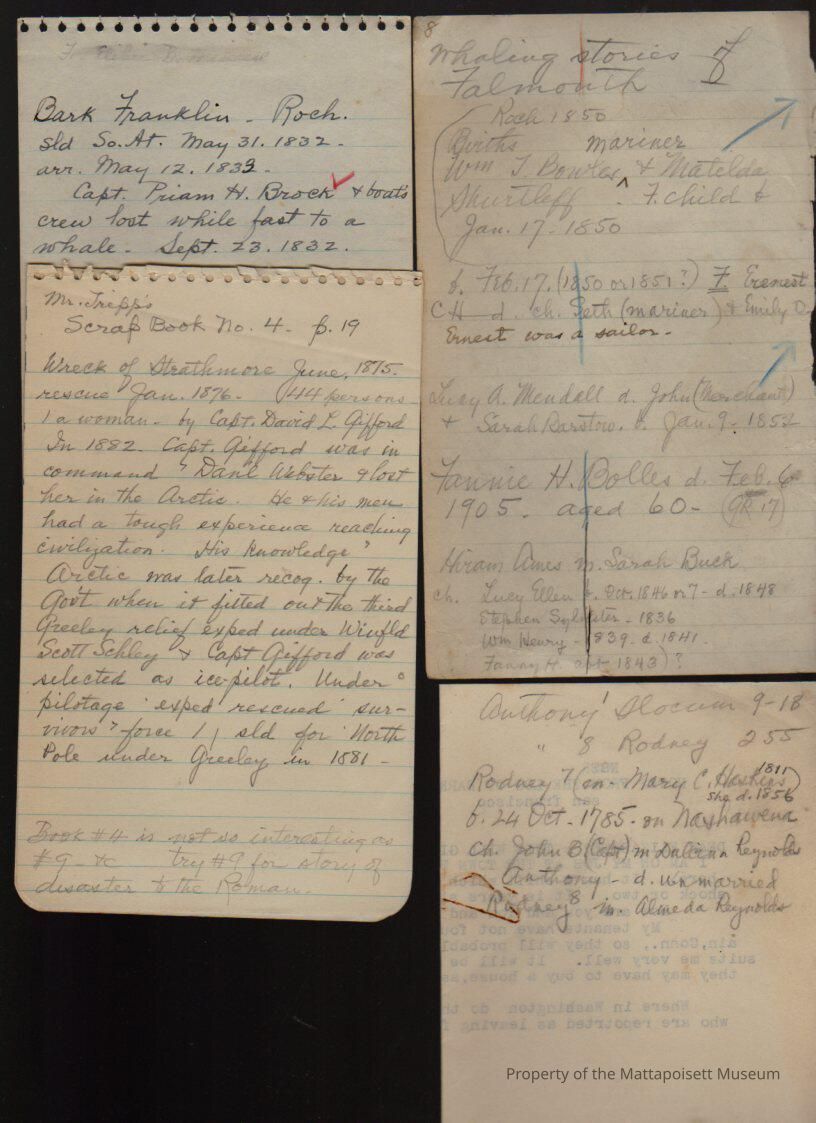 Bark Franklin - Roch.
sld So. At. May 31. 1832 -
arr. May 12. 1833 -
Capt. Priam H. Brock & boat's
crew lost while fast to a
whale - Sept. 23. 1832.
Mr. Tripp's
Scrap Book No. 4 - p. 19
Wreck of Strathmore June, 1875.
rescue Jan. 1876 - 44 persons -
1 a woman - by Capt. David L. Gifford
In 1882 Capt. Gifford was in
command " Danl Webster & lost
her in the Arctic. He & his men
had a tough experience reaching
civilization. His knowledge "
Arctic was later recog. by the
Gov't when it fitted out the third
Greeley relief exped under Winfld
Scott Schley & Capt Gifford was
selected as ice-pilot. Under "
pilotage " exped rescued " sur-
vivors " force 1, sld for North
Pole under Greeley in 1881 -
Book #4 is not so interesting as
#9 - try #9 for story of
disaster to the Roman.
8
Whaling stories of
Falmouth
Roch 1850
Births mariner
Wm T. Bowles ^ & Matelda
Shurtleff. F. child b
Jan. 17 - 1850
b. Feb. 17. (1850 or 1851?) F. Erenest
C H d. ch. Seth (mariner) & Emily O.
Ernest was a sailor -
Lucy A. Mendall d. John (Merchant)
+ Sarah Barstow. b. Jan. 9 - 1852
Fannie H. Bolles d. Feb. 6
1905 - aged 60 - (GR 17)
Hiram Ames m. Sarah Buck
ch. Lucy Ellen b. Oct. 1846 or 7 - d. 1848
Stephen Sylvester - 1836
Wm Henry - 1839 - d. 1841 -
Fanny H. abt 1843) ?
Anthony Slocum 9-18
" 8 Rodney 255
Rodney 7 (m - Mary C. Haskins) 1811
she d. 1856
b. 24 Oct - 1785 - on Nashawena
ch. John B (Capt) m Reynolds
Anthony - d. unmarried
Rodney 8 m - Almeda Reynolds
Property of the Mattapoisett Museum